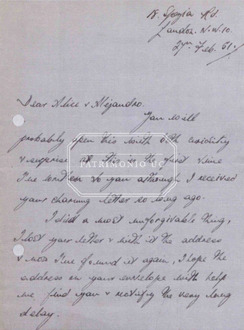 Rd.
London. N.W.10.
27th Feb. 61.
Dear Alice & Alejandro.
You will
probably open this with both curiosity
& surprise as this is the first time
I've written to you although I received
your charming letter so long ago.
I did a most unforgivable thing,
I lost your letter & with it the address
& now I've found it again, I hope the
address on your envelope will help
me find you & rectify the very long
delay.
PATRIMONIO UC